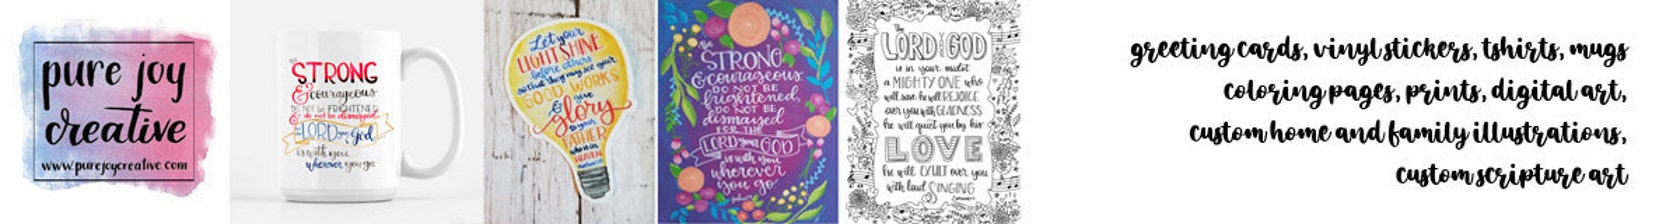 pure joy
creative
www.purejoycreative.com
be
STRONG
& courageous
DO NOT be FRIGHTENED
& do not be dismayed
for the
LORD your God
is with you
wherever you go.
Let your
LIGHT SHINE
before others
so that they may see your
GOOD WORKS
& give
glory
to your
FATHER
who is in
HEAVEN
be
STRONG
& courageous
DO NOT BE
frightened,
DO NOT BE
dismayed
FOR THE
LORD your GOD
is with you
wherever
you go
The
LORD your GOD
is in your midst
a MIGHTY ONE who
will save he will REJOICE
over you with GLADNESS
he will quiet you by his
LOVE
he will EXULT over you
with loud SINGING
greeting cards, vinyl stickers, tshirts, mugs
coloring pages, prints, digital art,
custom home and family illustrations,
custom scripture art